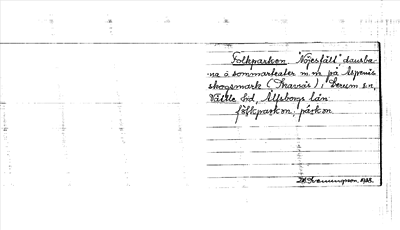 Folkparken "Nöjesfält", dansba-
na o sommarteater m.m på Aspenäs
skogsmark
Lerum s:n,
Vättle hd, Älfsborgs län
folkparken, parken
1933.